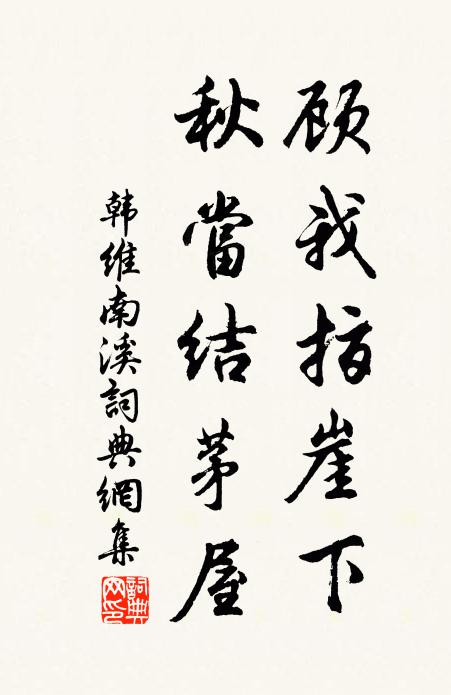 顾我指崖下
秋當结茅屋
韩維南溪詞典網集
詞典网印